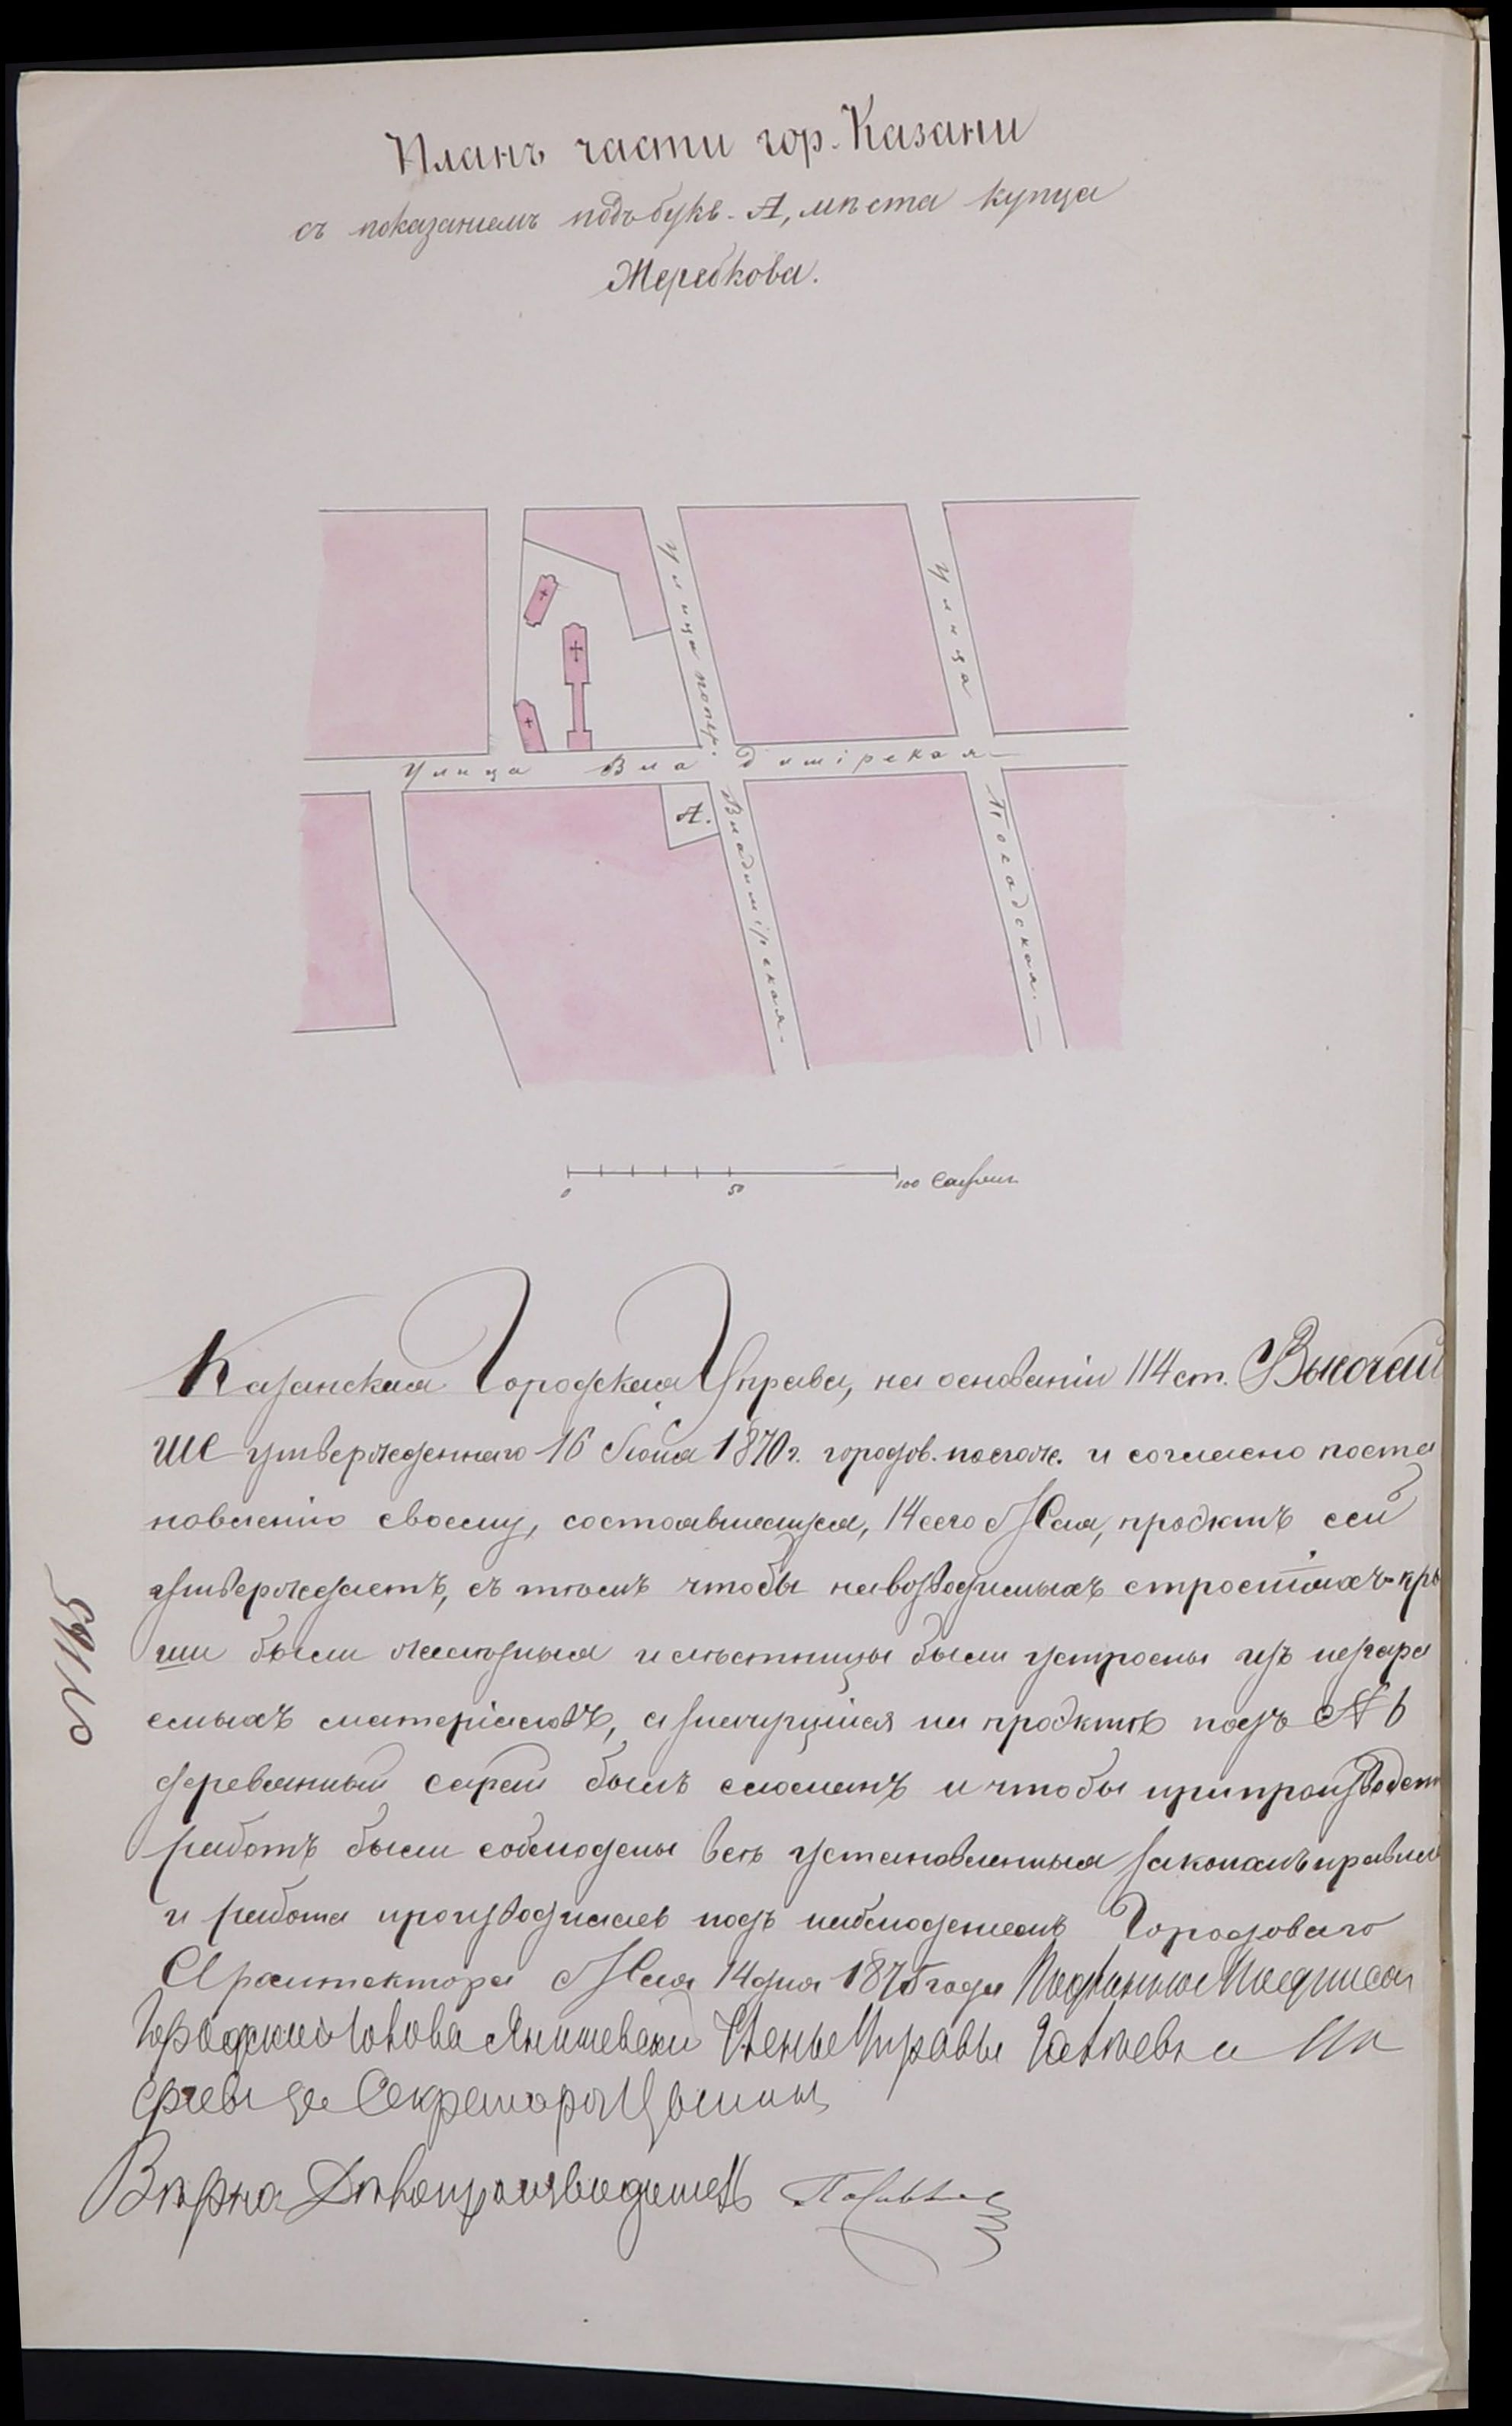 Планъ части гор. Казани
съ показаніемъ подъ букв. А, мѣста купца
Жеребкова.
Улица попер.
Улица
Улица Владимірская
А.
Владимірская
Посадская.
0 50 100 Сажень
Казанская Городская Управа, на основаніи 114 ст. Высочай
ше утвержденнаго 16 Іюня 1870 г. городов. полож. и согласно поста
новленію своему, состоявшемуся, 14 сего Мая, проэктъ сей
утверждаетъ, съ тѣмъ чтобы на возводимыхъ строеніяхъ кры
ши были желѣзныя и лѣстницы были устроены изъ несгара
емыхъ матеріаловъ, а значущійся на проэктѣ подъ № 6
деревянный сарай былъ сломанъ и чтобы при производст
работъ были соблюдены всѣ установленныя закономъ правил
и работа производилась подъ наблюденіемъ Городоваго
Архитектора Мая 14 дня 1875 года Подлинное Подписал
Городской Голова Янишевскій Члены Управы и
Секретарь
Вѣрно Дѣлопроизводитель